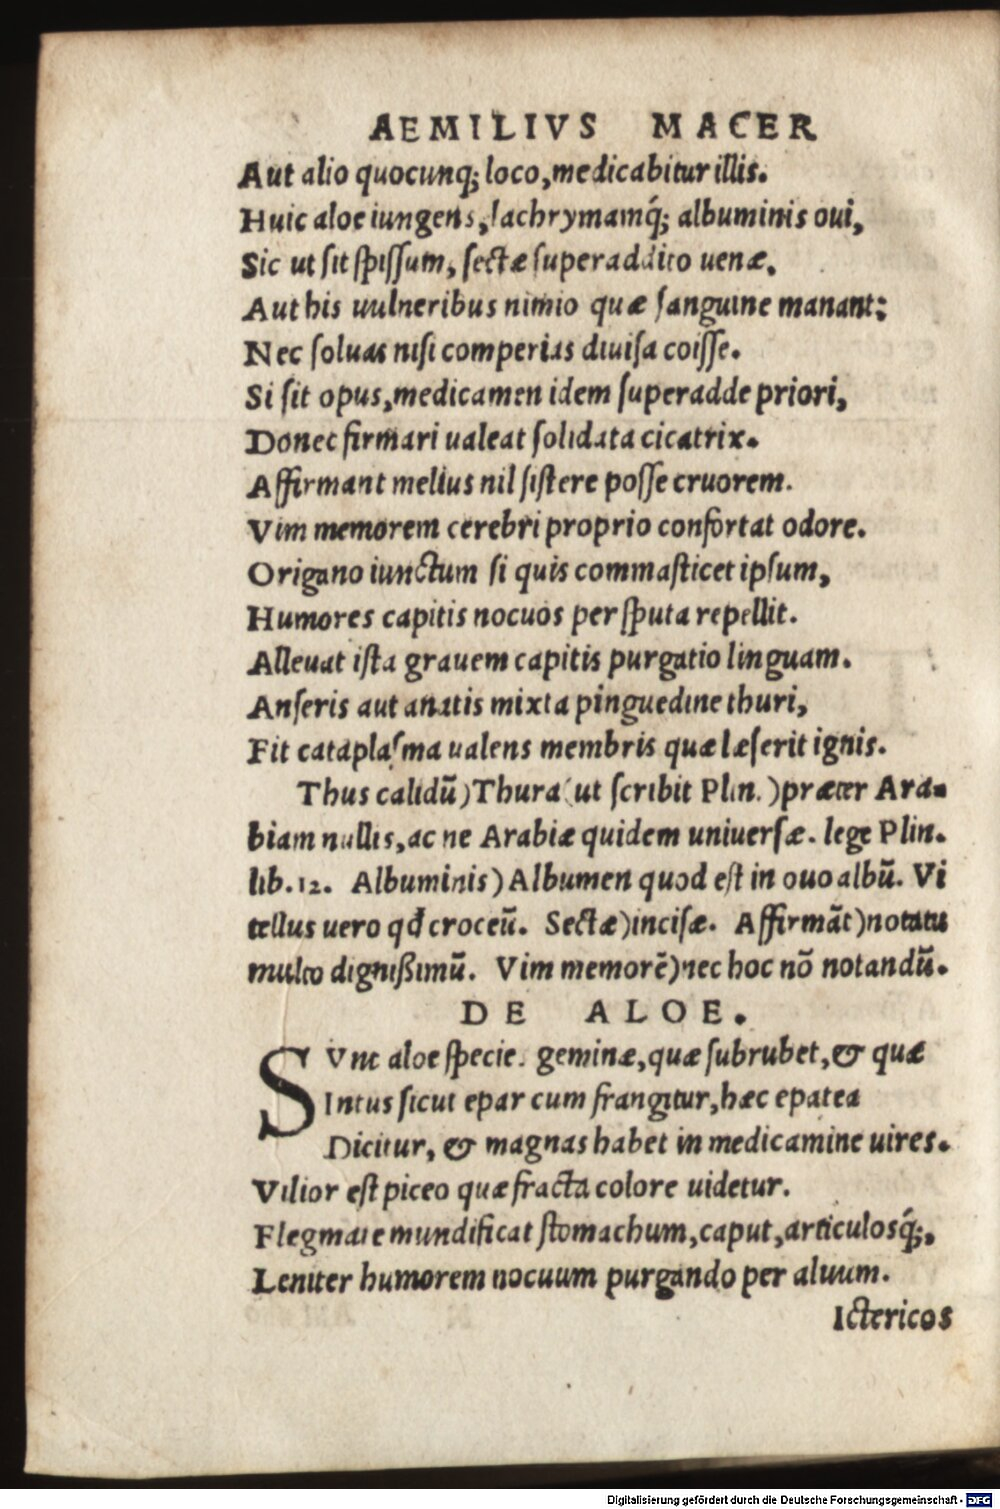 AEMILIVS MACER
Aut alio quocunq; loco, medicabitur illis.
Huic aloe iungens, lachrymamq́; albuminis oui,
Sic ut sit spissum, sectæ superaddito uenæ.
Aut his uulneribus nimio quæ sanguine manant:
Nec soluas nisi comperias diuisa coisse.
Si sit opus, medicamen idem superadde priori,
Donec firmari ualeat solidata cicatrix.
Affirmant melius nil sistere posse cruorem.
Vim memorem cerebri proprio confortat odore.
Origano iunctum si quis commasticet ipsum,
Humores capitis nocuos per sputa repellit.
Alleuat ista grauem capitis purgatio linguam.
Anseris aut anatis mixta pinguedine thuri,
Fit cataplasma ualens membris quæ læserit ignis.
Thus calidũ) Thura (ut scribit Plin.) præter Ara-
biam nullis, ac ne Arabiæ quidem uniuersæ. lege Plin.
lib. 12. Albuminis) Albumen quod est in ouo albũ. Vi
tellus uero qđ croceũ. Sectæ) incisæ. Affirmãt) notatu
multo dignißimũ. Vim memorẽ) nec hoc nõ notandũ.
DE ALOE.
SVnt aloe specie. geminæ, quæ subrubet, & quæ
Intus sicut epar cum frangitur, hæc epatea
Dicitur, & magnas habet in medicamine uires.
Vilior est piceo quæ fracta colore uidetur.
Flegmate mundificat stomachum, caput, articulosq́;,
Leniter humorem nocuum purgando per aluum.
Ictericos
Digitalisierung gefördert durch die Deutsche Forschungsgemeinschaft - DFG